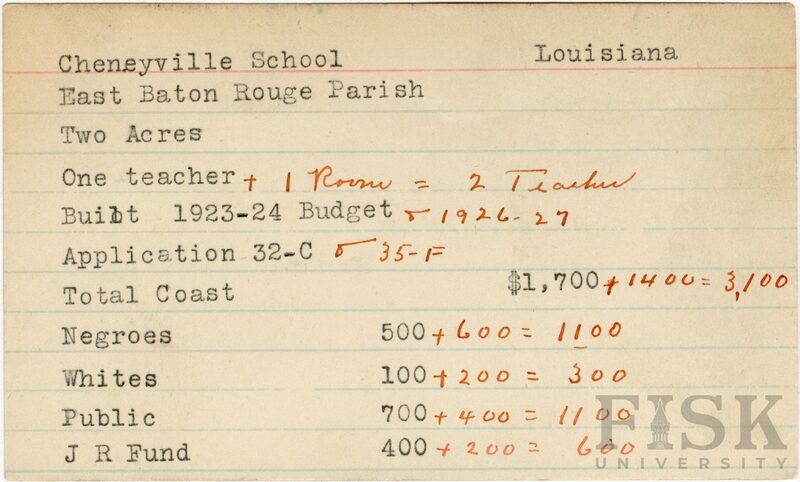 Cheneyville School Louisiana
East Baton Rouge Parish
Two Acres
One teacher + 1 Room = 2 Teacher
Built 1923-24 Budget & 1926-27
Application 32-C & 35-F
Total Coast $1,700 + 1400 = 3,100
Negroes 500 + 600 = 1100
Whites 100 + 200 = 300
Public 700 + 400 = 1100
J R Fund 400 + 200 = 600
FISK
UNIVERSITY